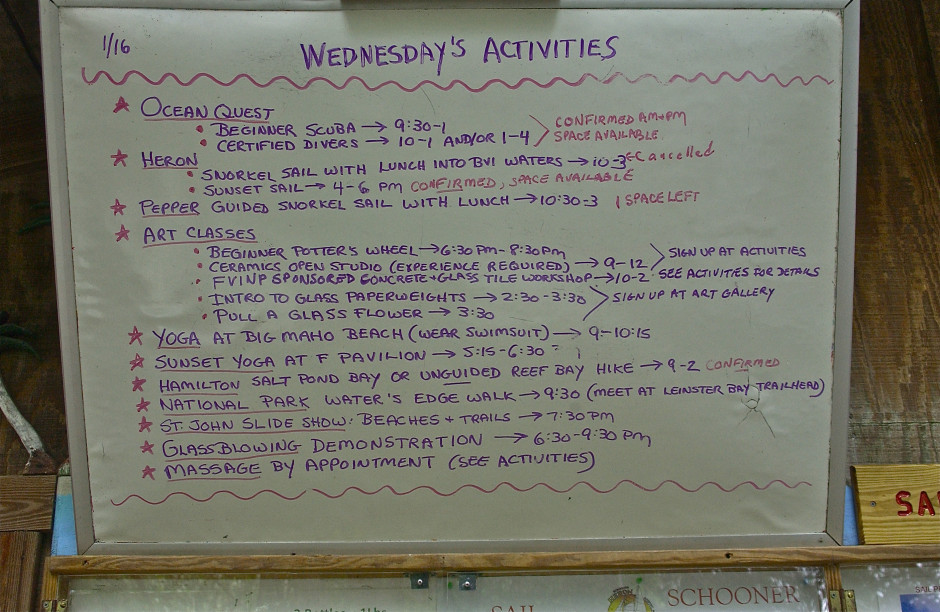 1/16
WEDNESDAY'S ACTIVITIES
OCEAN QUEST
BEGINNER SCUBA → 9:30-1
CERTIFIED DIVERS → 10-1 AND/OR 1-4
CONFIRMED AM+PM
SPACE AVAILABLE
HERON
SNORKEL SAIL WITH LUNCH INTO BVI WATERS → 10-3 ← Cancelled
SUNSET SAIL → 4-6 PM CONFIRMED, SPACE AVAILABLE
PEPPER GUIDED SNORKEL SAIL WITH LUNCH → 10:30-3 1 SPACE LEFT
ART CLASSES
BEGINNER POTTER'S WHEEL → 6:30 PM - 8:30 PM
CERAMICS OPEN STUDIO (EXPERIENCE REQUIRED) → 9-12
SIGN UP AT ACTIVITIES
FVINP SPONSORED CONCRETE + GLASS TILE WORKSHOP → 10-2 SEE ACTIVITIES FOR DETAILS
INTRO TO GLASS PAPERWEIGHTS → 2:30-3:30
PULL A GLASS FLOWER → 3:30
SIGN UP AT ART GALLERY
YOGA AT BIG MAHO BEACH (WEAR SWIMSUIT) → 9-10:15
SUNSET YOGA AT F PAVILION → 5:15-6:30
HAMILTON SALT POND BAY OR UNGUIDED REEF BAY HIKE → 9-2 CONFIRMED
NATIONAL PARK WATER'S EDGE WALK → 9:30 (MEET AT LEINSTER BAY TRAILHEAD)
ST. JOHN SLIDE SHOW: BEACHES + TRAILS → 7:30 PM
GLASSBLOWING DEMONSTRATION → 6:30-9:30 PM
MASSAGE BY APPOINTMENT (SEE ACTIVITIES)
SA
SAIL
SCHOONER
SAIL